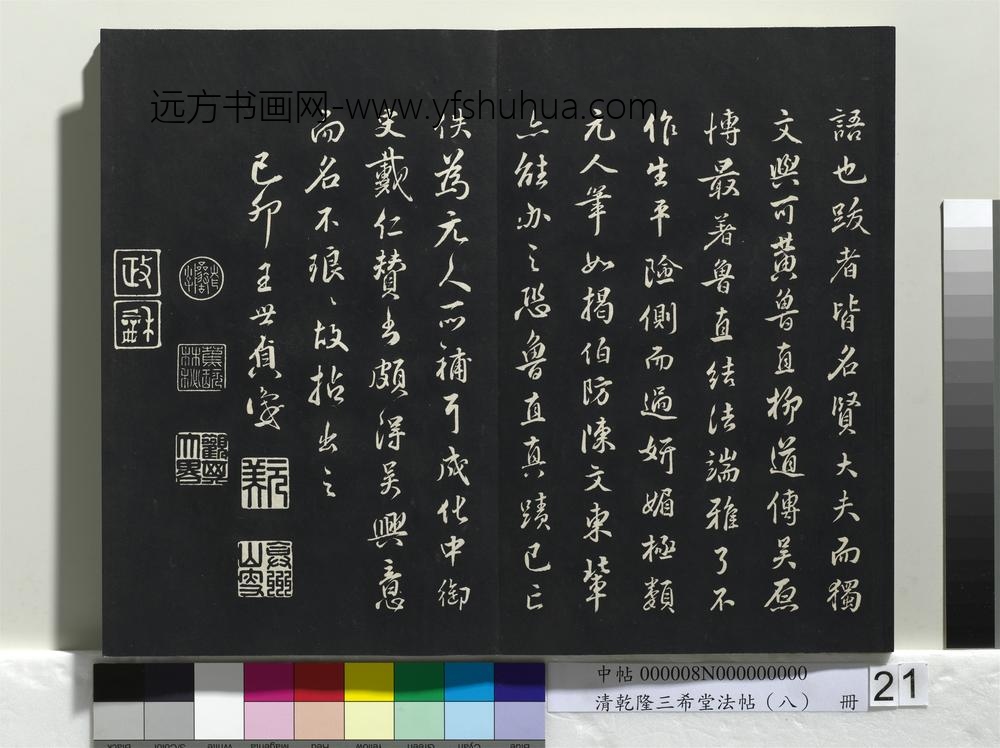 語也跋者皆名賢大夫而獨
文與可黃魯直柳道傳吳原
博最著魯直結法端雅了不
作生平險側而過妍媚極類
元人筆如揭伯防陳文東輩
亦能辦之恐魯直真蹟已亡
佚為元人所補耳成化中御
史戴仁贊書頗得吳興意
而名不琅〻故拈出之
己卯王世貞識
远方书画网-www.yfshuhua.com
中帖 000008N000000000
清乾隆三希堂法帖（八） 冊
21
Black
3/Color
White
Magenta
Red
Yellow
Green
Cyan
Blue